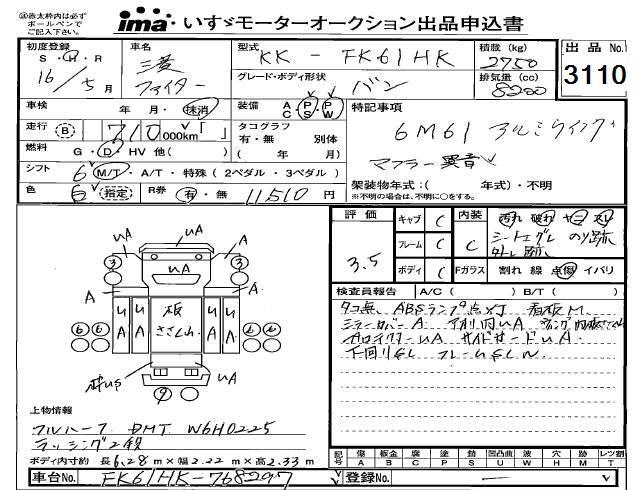 ㊟赤太枠内は必ず
ボールペンで
ご記入下さい。
ima いすゞモーターオークション出品申込書
初度登録 車名 型式 積載 (kg) 出品No.
S・H・R 三菱 KK - FK61HK 2750 3110
16年5月 ファイター グレード・ボディ形状 バン 排気量 (cc) 8200
車検 年・月・抹消 装備 A P P 特記事項
C S W
走行 (B) 710,000km 「 」 タコグラフ 6M61 アルミウイング
有・無 別体
燃料 G・D・HV 他( ) ( 年 月) マフラー異音
シフト 6 M/T・A/T・特殊 (2ペダル・3ペダル) 架装物年式:( 年式)・不明
色 指定 R券 有・無 11510円 ※不明の場合は、不明に○をする。
評価 キャブ C 内装 汚れ 破れ ヤニ スレ
3.5 フレーム C C シートエグレ のり跡
ボディ C Fガラス 割れ 線 点傷 イバリ
検査員報告 A/C( ) B/T( )
タコ無 ABSランプ点灯 看板M
ミラーカバーA
サイドガードUA
下回りS
UA A UA A
3 3
A A
UA UA 板 UA UA
ささくれ
6 6 6 6
UA
9
上物情報
フルハーフ DMT W6H0225
ラッシング2段
ボディ内寸約 長6.28m×幅2.22m×高2.33m
記号 傷 板金 腐 塗 錆 凹凸曲 波 穴 跡 レツ割
A B C P S U W H M T
車台No. FK61HK-768297 登録No. ―